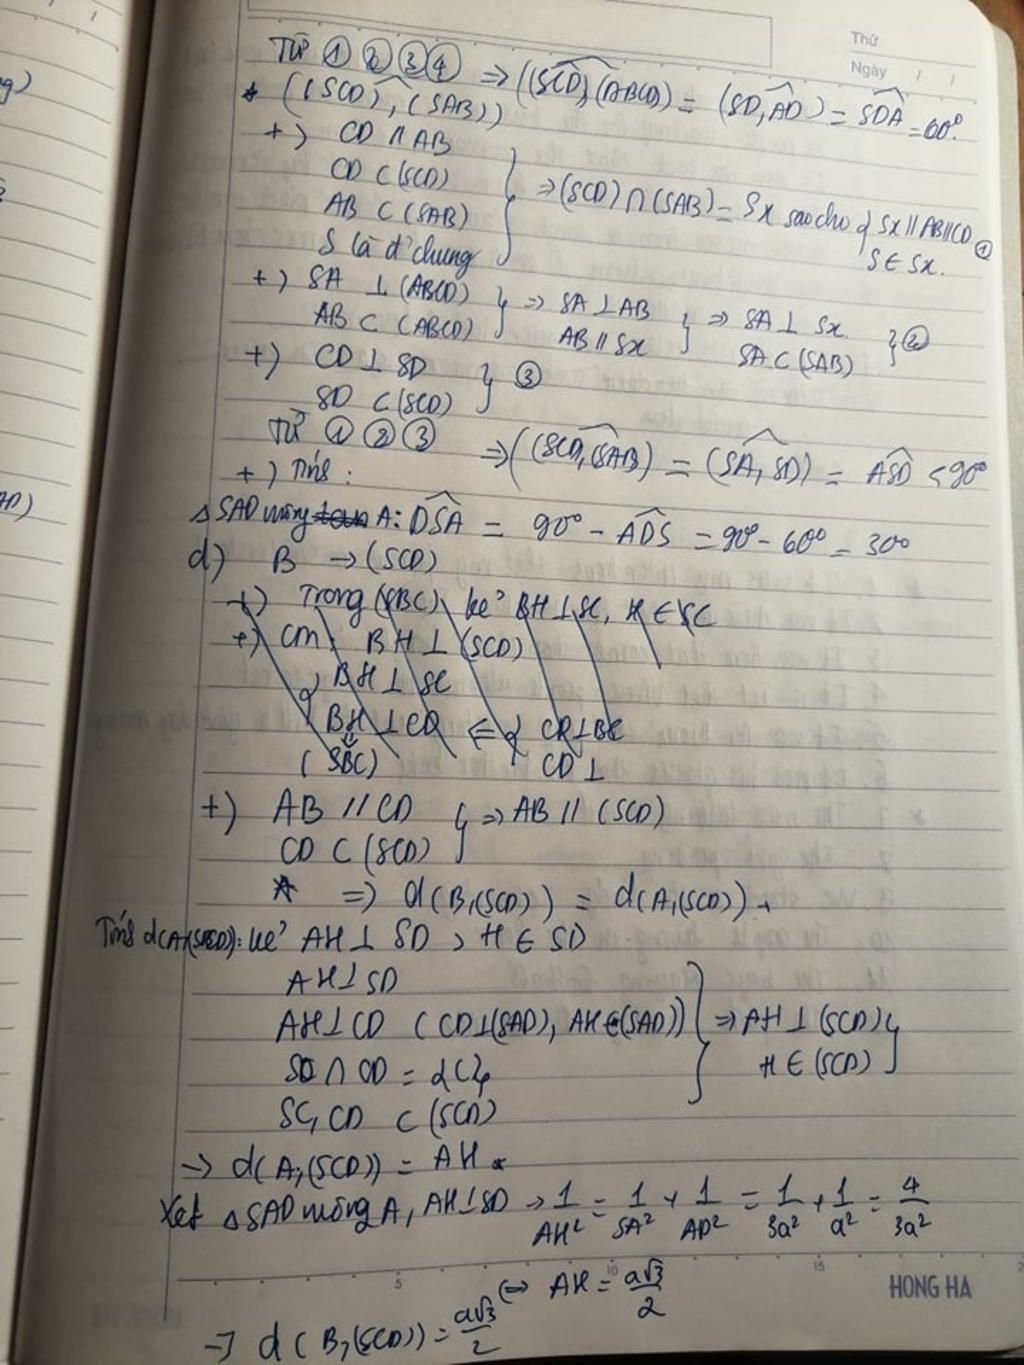 Thứ
Ngày / /
Từ ① ② ③ ④ ⇒ ((SCD),(ABCD)) = (SD,AD) = SDA = 60°.
* ((SCD),(SAB))
+) CD // AB
CD ⊂ (SCD)
AB ⊂ (SAB)
S là đ' chung
} ⇒ (SCD) ∩ (SAB) = Sx sao cho { Sx // AB // CD ①
S ∈ Sx.
+) SA ⊥ (ABCD)
AB ⊂ (ABCD) } ⇒ SA ⊥ AB
AB // Sx } ⇒ SA ⊥ Sx
SA ⊂ (SAB) } ②
+) CD ⊥ SD
SD ⊂ (SCD) } ③
Từ ① ② ③ ⇒ ((SCD,(SAB) = (SA, SD) = ASD < 90°
+) Tính :
△SAD vuông A: DSA = 90° - ADS = 90° - 60° = 30°
d) B → (SCD)
+) Trong (SBC), kẻ BH ⊥ SC, H ∈ SC
+) cm: BH ⊥ (SCD)
{ BH ⊥ SC
BH ⊥ CD ⇐ { CD ⊥ BC
(SBC) CD ⊥
+) AB // CD
CD ⊂ (SCD) } ⇒ AB // (SCD)
⇒ d(B,(SCD)) = d(A,(SCD)).
Tính d(A,(SCD)): kẻ AH ⊥ SD, H ∈ SD
AH ⊥ SD
AH ⊥ CD (CD ⊥ (SAD), AH ⊂ (SAD))
SC ∩ CD = {C}
SC, CD ⊂ (SCD)
} ⇒ AH ⊥ (SCD)
H ∈ (SCD) }
→ d(A,(SCD)) = AH
Xét △SAD vuông A, AH ⊥ SD → 1/AH² = 1/SA² + 1/AD² = 1/3a² + 1/a² = 4/3a²
⇔ AH = a√3/2
→ d(B,(SCD)) = a√3/2
5 10 15
HONG HA